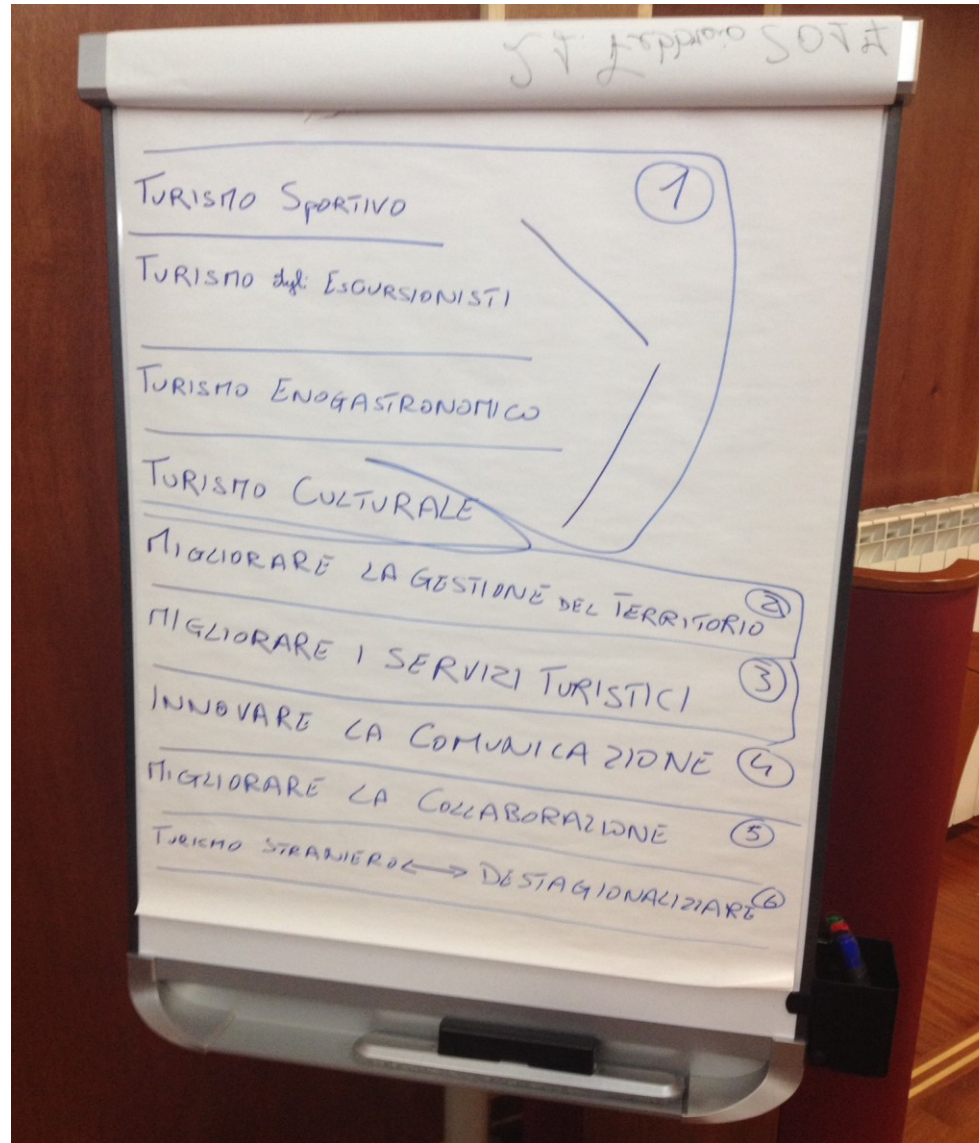 1
TURISMO SPORTIVO
TURISMO degli ESCURSIONISTI
TURISMO ENOGASTRONOMICO
TURISMO CULTURALE
MIGLIORARE LA GESTIONE DEL TERRITORIO 2
MIGLIORARE I SERVIZI TURISTICI 3
INNOVARE LA COMUNICAZIONE 4
MIGLIORARE LA COLLABORAZIONE 5
TURISMO STRANIERO <-> DESTAGIONALIZZARE 6